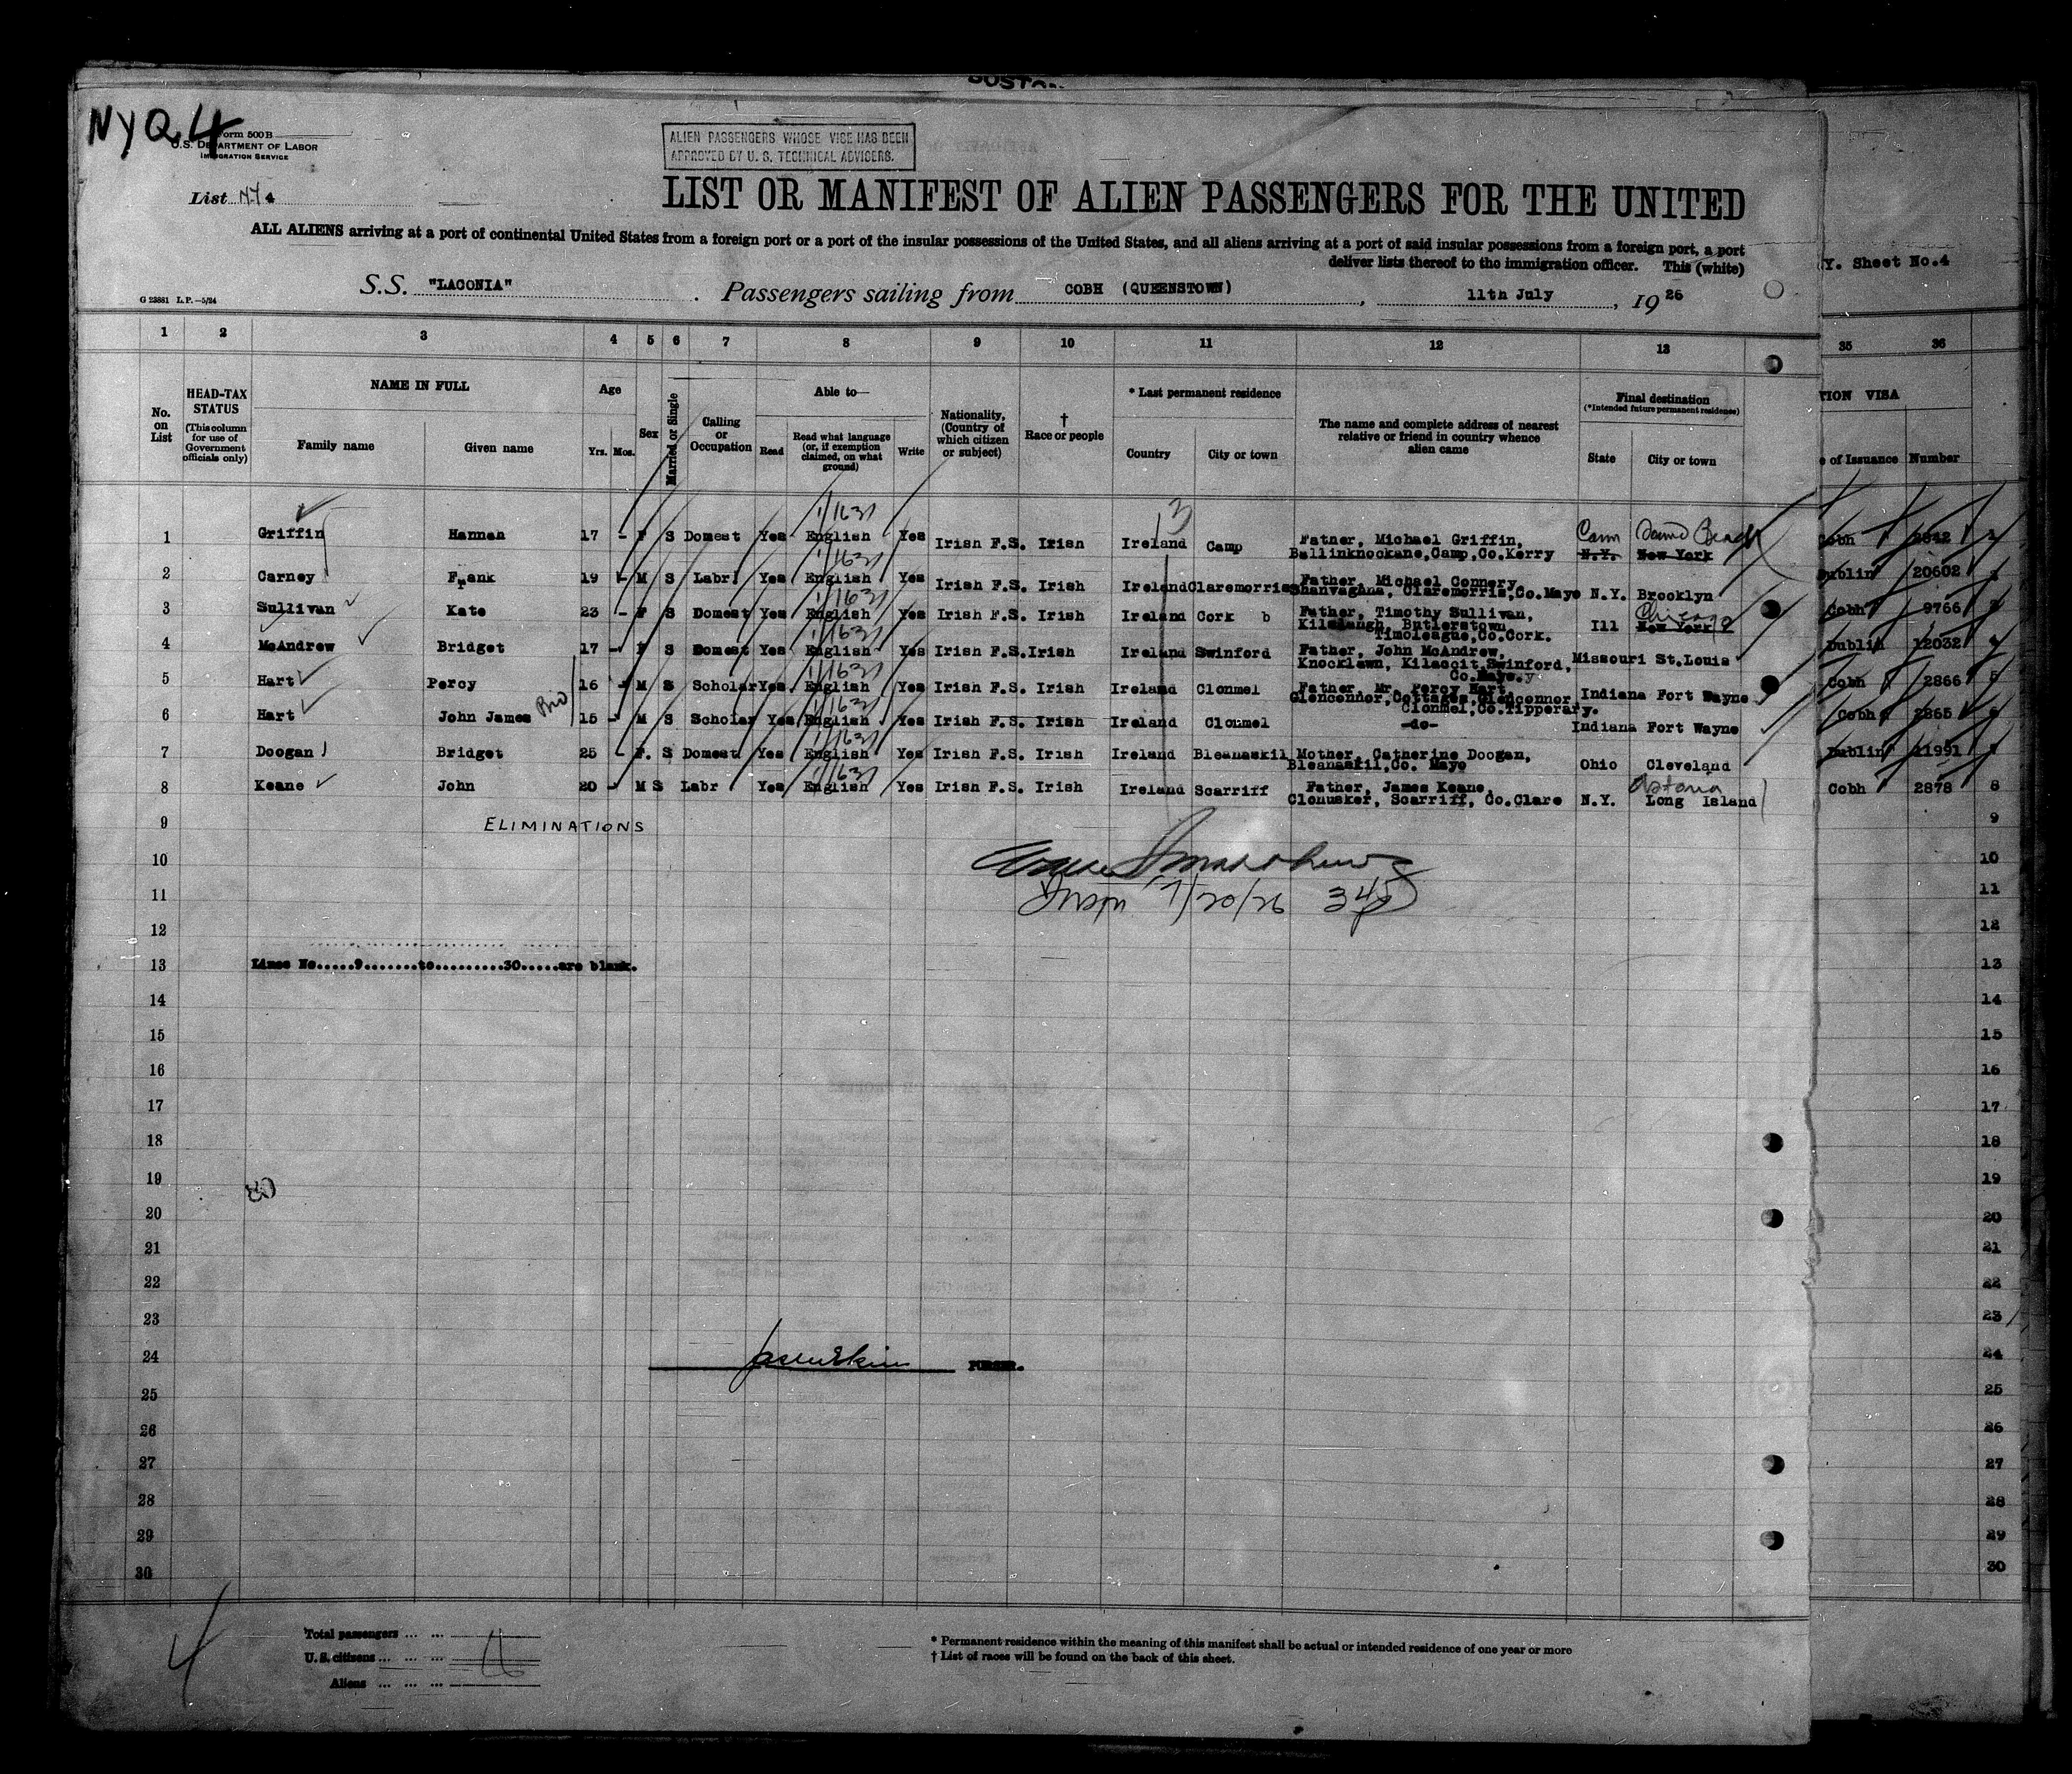 BOSTON
NYQ 4
Form 500 B
U.S. DEPARTMENT OF LABOR
IMMIGRATION SERVICE
ALIEN PASSENGERS WHOSE VICE HAS BEEN
APPROVED BY U. S. TECHNICAL ADVISERS.
List NY 4
LIST OR MANIFEST OF ALIEN PASSENGERS FOR THE UNITED
ALL ALIENS arriving at a port of continental United States from a foreign port or a port of the insular possessions of the United States, and all aliens arriving at a port of said insular possessions from a foreign port, a port
deliver lists thereof to the immigration officer. This (white)
Y. Sheet No.4
S.S. "LACONIA" Passengers sailing from COBH (QUEENSTOWN), 11th July, 1926
G 23881 L.P.—5/24
1 2 3 4 5 6 7 8 9 10 11 12 13 35 36
No. on List
HEAD-TAX STATUS
(This column for use of Government officials only)
NAME IN FULL
Family name Given name
Age
Yrs. Mos.
Sex
Married or Single
Calling or Occupation
Able to—
Read
Read what language (or, if exemption claimed, on what ground)
Write
Nationality, (Country of which citizen or subject)
† Race or people
* Last permanent residence
Country City or town
The name and complete address of nearest relative or friend in country whence alien came
Final destination
(*Intended future permanent residence)
State City or town
TION VISA
e of Issuance Number
1 Griffin Hannah 17 - F S Domest Yes English Yes Irish F.S. Irish Ireland Camp Father, Michael Griffin, Conn Sound Beach Cobh 2842
Ballinknockane, Camp, Co.Kerry N.Y. New York
2 Carney Frank 19 - M S Labr. Yes English Yes Irish F.S. Irish Ireland Claremorris Father, Michael Connery Dublin 20602
Shanvaghna, Claremorris, Co.Mayo N.Y. Brooklyn
3 Sullivan Kate 23 - F S Domest Yes English Yes Irish F.S. Irish Ireland Cork b Father, Timothy Sullivan, Chicago Cobh 9766
Butlerstown Ill New York
Timoleague, Co.Cork.
4 McAndrew Bridget 17 - F S Domest Yes English Yes Irish F.S. Irish Ireland Swinford Father, John McAndrew, Missouri St.Louis Dublin 12032
Knocklawn, Kilaccit Swinford,
Co.Mayo.y
5 Hart Percy 16 - M S Scholar Yes English Yes Irish F.S. Irish Ireland Clonmel Father, Mr. Percy Hart, Indiana Fort Wayne Cobh 2866 5
Glenconnor, Cottages, Glenconnor
Clonmel, Co.Tipperary.
6 Hart John James 15 - M S Scholar Yes English Yes Irish F.S. Irish Ireland Clonmel -do- Indiana Fort Wayne Cobh 2865 6
7 Doogan Bridget 25 - F. S Domest Yes English Yes Irish F.S. Irish Ireland Bleanaskil Mother, Catherine Doogan, Dublin 11991
Bleanaskil, Co. Mayo Ohio Cleveland
8 Keane John 20 - M S Labr Yes English Yes Irish F.S. Irish Ireland Scarriff Father, James Keane, Astoria Cobh 2878 8
Clonusker, Scarriff, Co.Clare N.Y. Long Island
9 ELIMINATIONS 9
10 10
11 Insp 7/20/26 11
12 12
13 Lines No.....9.......to.........30.....are blank. 13
14 14
15 15
16 16
17 17
18 18
19 19
20 20
21 21
22 22
23 23
24 PURSER. 24
25 25
26 26
27 27
28 28
29 29
30 30
4
Total passengers ... ...
U.S. citizens ... ... ...
Aliens ... ... ...
* Permanent residence within the meaning of this manifest shall be actual or intended residence of one year or more
† List of races will be found on the back of this sheet.